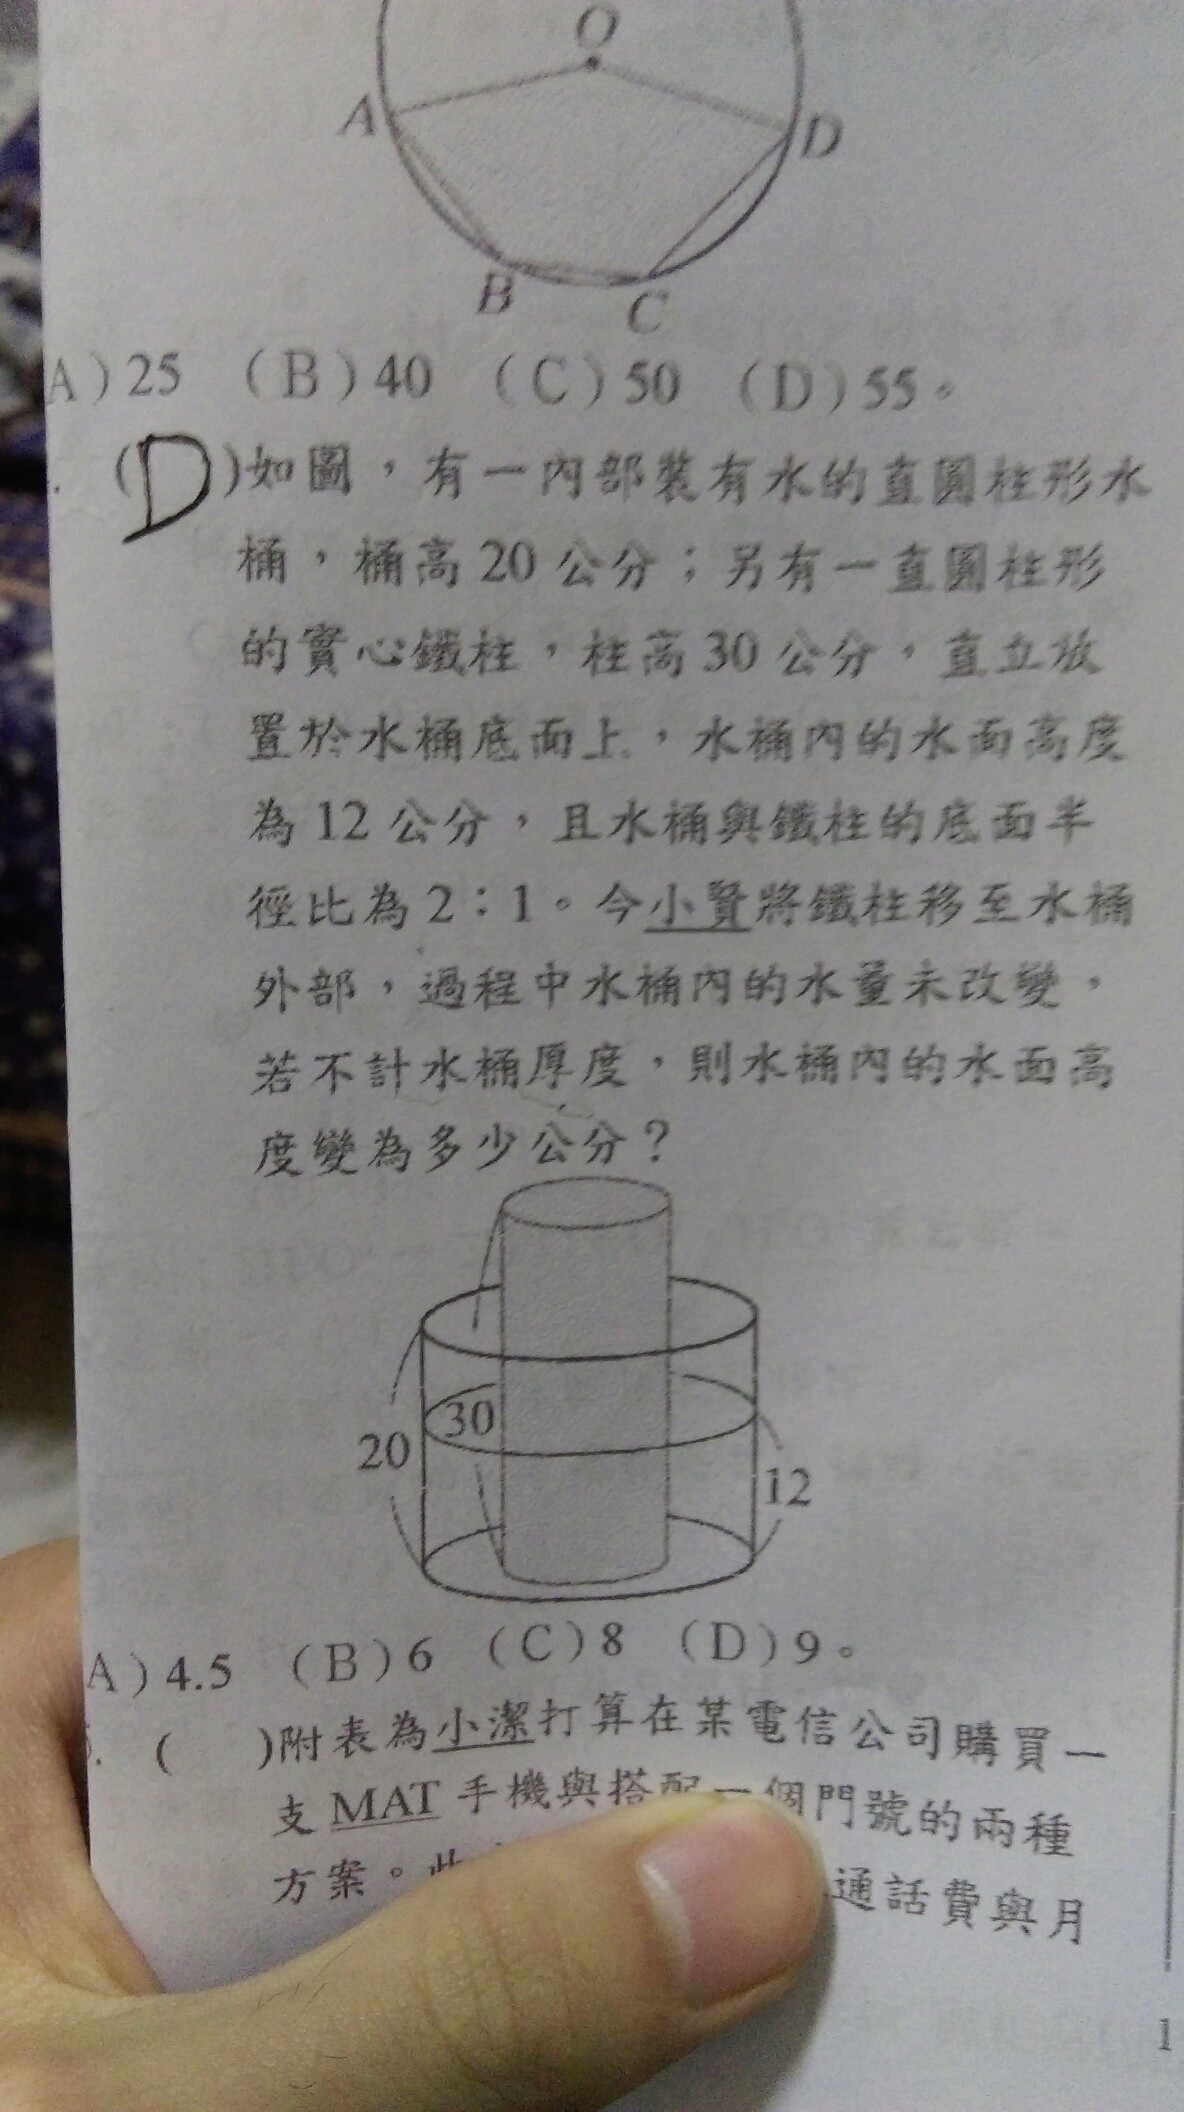 O
A
D
B
C
A)25 (B)40 (C)50 (D)55。
(D)如圖，有一內部裝有水的直圓柱形水
桶，桶高20公分；另有一直圓柱形
的實心鐵柱，柱高30公分，直立放
置於水桶底面上，水桶內的水面高度
為12公分，且水桶與鐵柱的底面半
徑比為2：1。今小賢將鐵柱移至水桶
外部，過程中水桶內的水量未改變，
若不計水桶厚度，則水桶內的水面高
度變為多少公分？
30
20
12
A)4.5 (B)6 (C)8 (D)9。
( )附表為小潔打算在某電信公司購買一
支MAT手機與搭配一個門號的兩種
方案。此
通話費與月
1